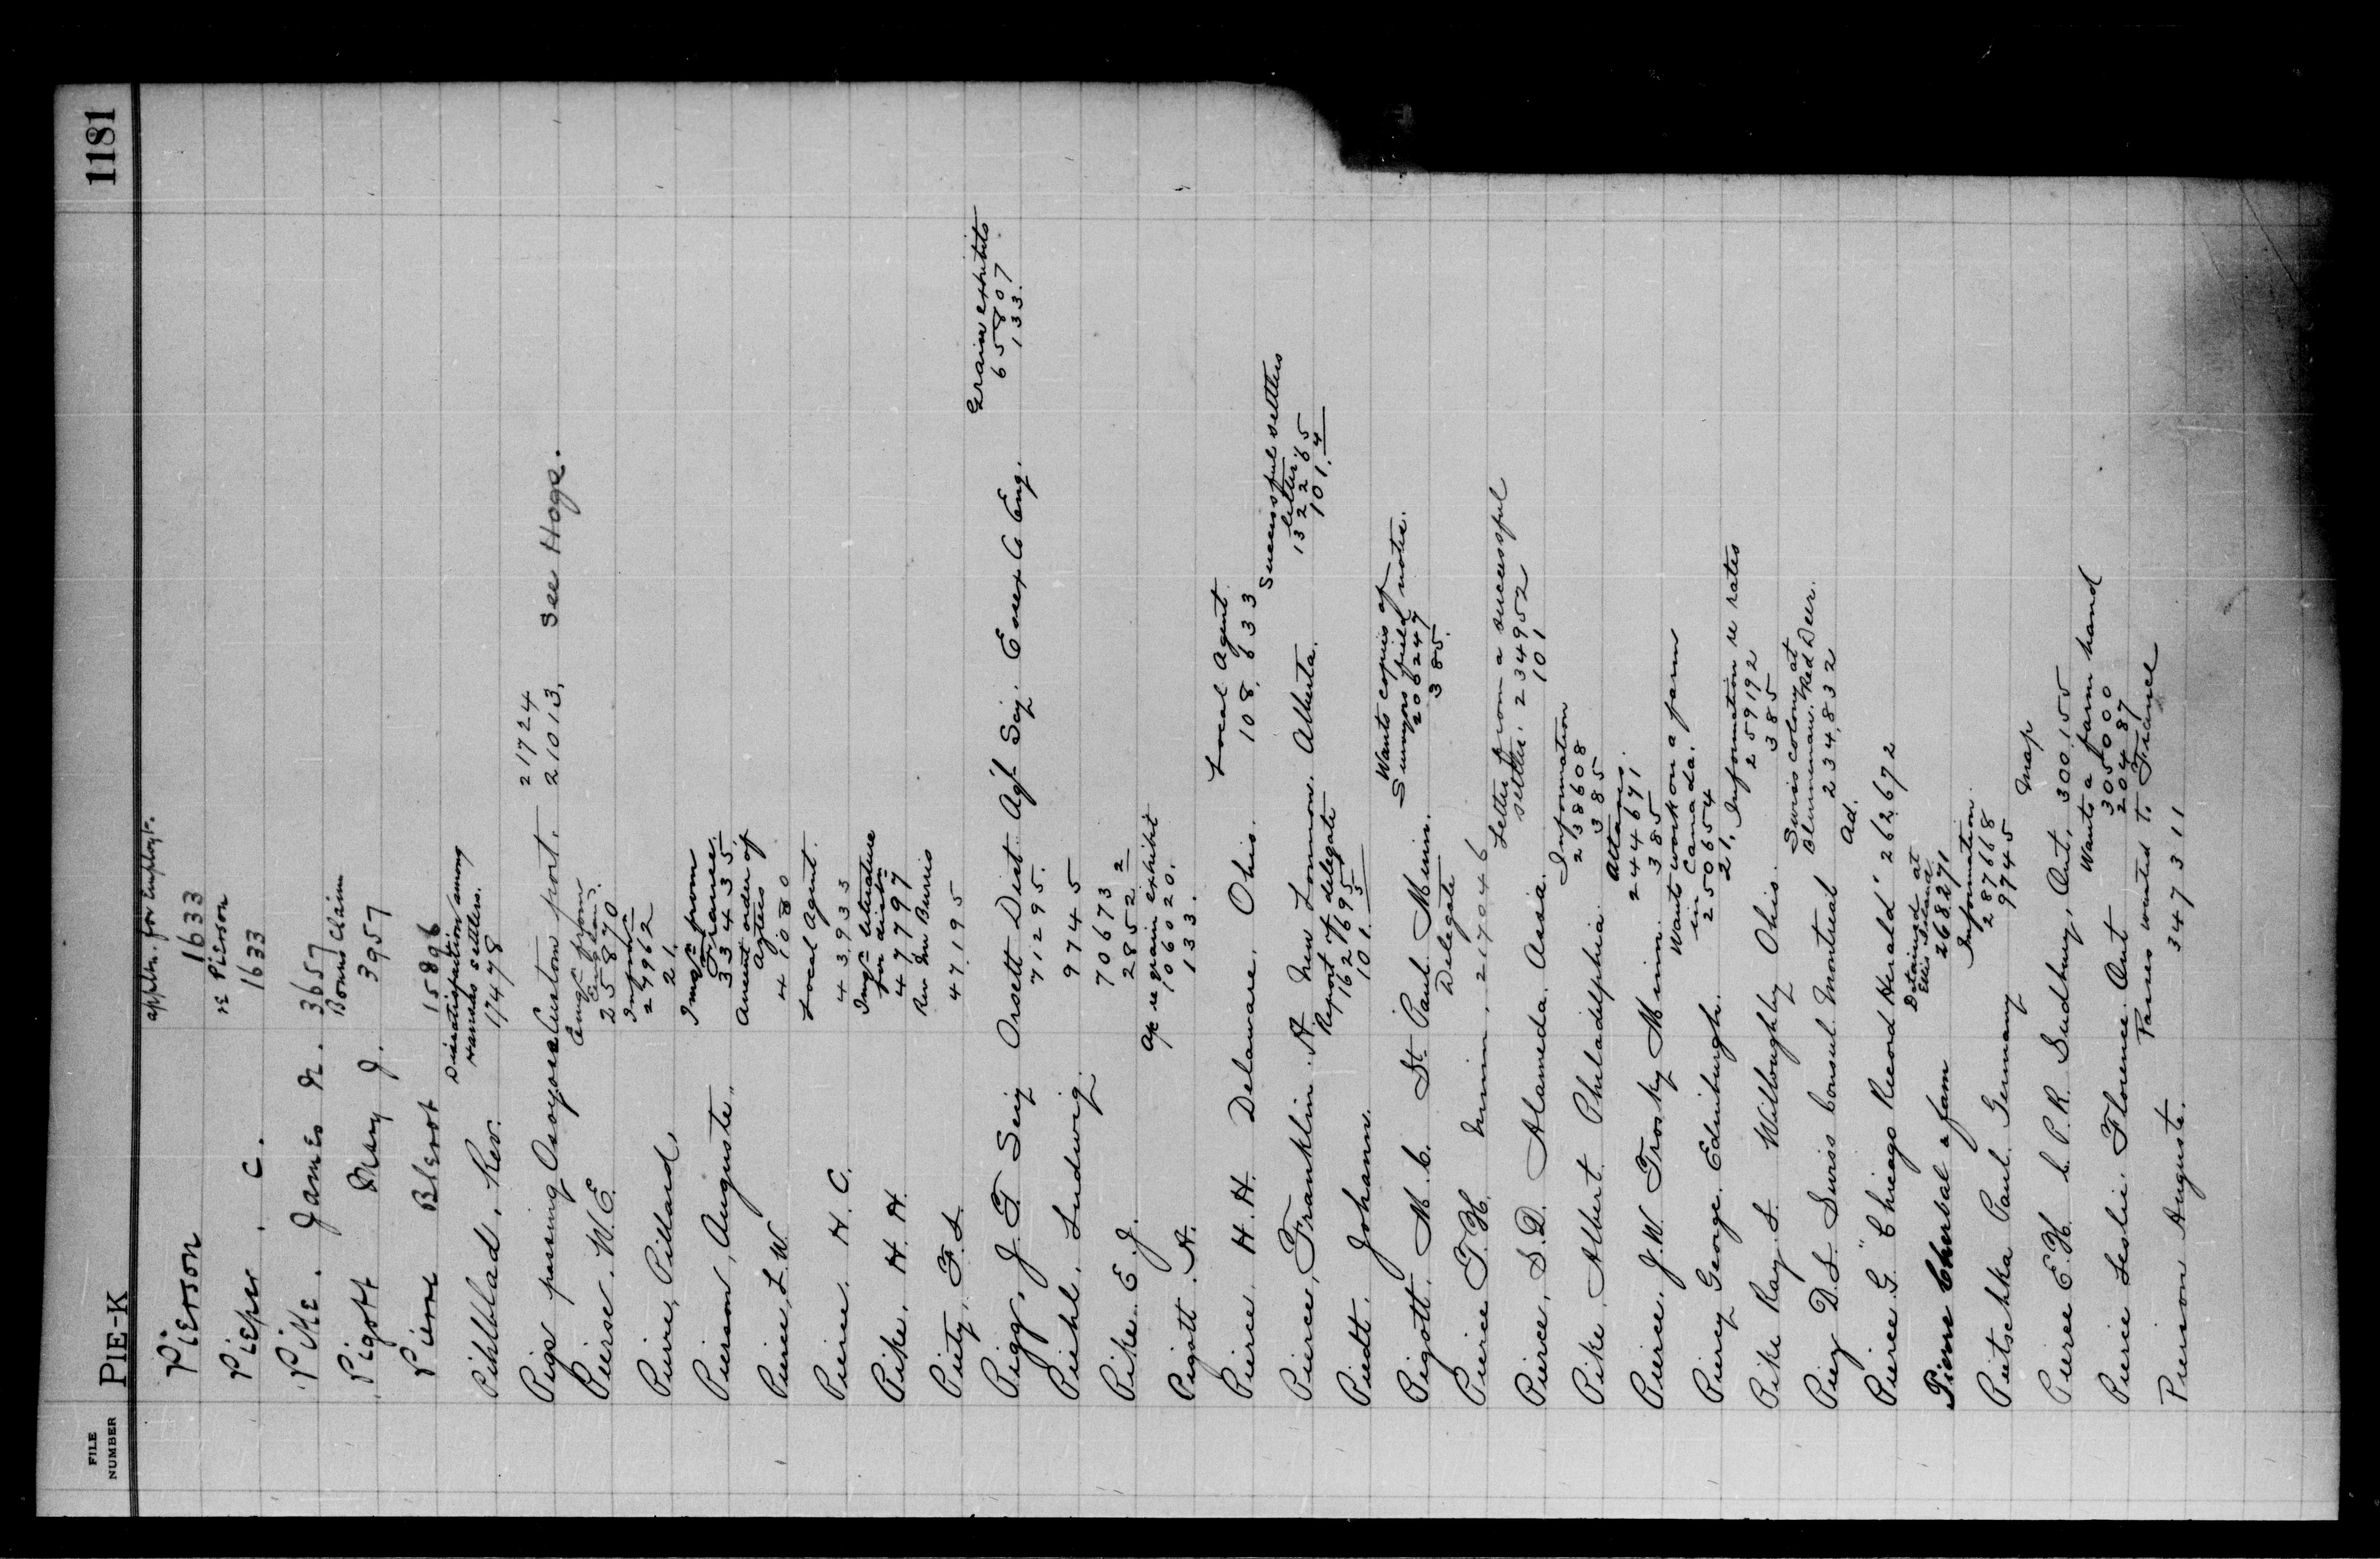 FILE NUMBER
PIE-K
1181
appltn. for Employt.
Pierson 1633
re Pierson
Pieper. C. 1633
Pike. James N. 3657
Bonus Claim
Pigott Mary J. 3957
Pierre Blerot 15896
Dissatisfaction among
Kansas settlers.
Pihlblad. Rev. 17478
21724
Pigs passing Osoyoos Custom port. 21013, see Hogs.
Emign from
Pierse. W. E. 25870
Inform
Pierre, Pillard, 24962
21.
Imign from
France.
Pierson, Auguste. 33435
Amount order of
Agtees of
Pierce, L. W. 41080
Local Agent.
Pierce. H. C. 43933
Imign literature
for distbn
Pike. H. H. 47797
Rev Burris
Piety, F. L. 47195
Grain exhibits
65807
133.
Pigg, J. T. Secy Orsett Dist Agl Scy. Essex Co Eng.
71295.
Piehl, Ludwig. 9745
Pike. E. J. 70673
2852
Ap re grain exhibit
Pigott. A. 106020.
133.
Local Agent
Pierce H. H. Delaware. Ohio. 108,633
Successful settlers
letters
132265
101.4
Pierce, Franklin. A. New Lomond. Alberta.
Report of delegate
Piedt. Johann. 162695
101.5
Wants copies of
Surveyors field notes.
Pigott. M. C. St. Paul. Minn. 206247
385.
Delegate
Pierce T. H. Minn. 217046
Letter from a successful
settler. 234952
101
Pierce, S. D. Alameda. Assa.
Information
238608
385
Pike. Albert. Philadelphia.
244671
385
Pierce. J. W. Trosky Minn.
Wants work on a farm
in Canada.
Piercy George. Edinburgh. 250654
21,
Information re rates
259192
385
Pike Ray. S. Willoughby Ohio.
Swiss colony at
Blumenau. Red Deer.
Piey D. L. Swiss Consul Montreal 234,832
Ad.
Pierce. G. "Chicago Record Herald" 262672
Detained at
Ellis Island
Pierre Cherbal & fam 268271
Information.
287668
Pietschka Paul. Germany 9745
Map
Pierce E. H. C. P. R. Sudbury, Ont, 300155
Wants a farm hand
305000
Pierie Leslie. Florence. Ont 20487
Passes wanted to France
Pierison Auguste. 347311